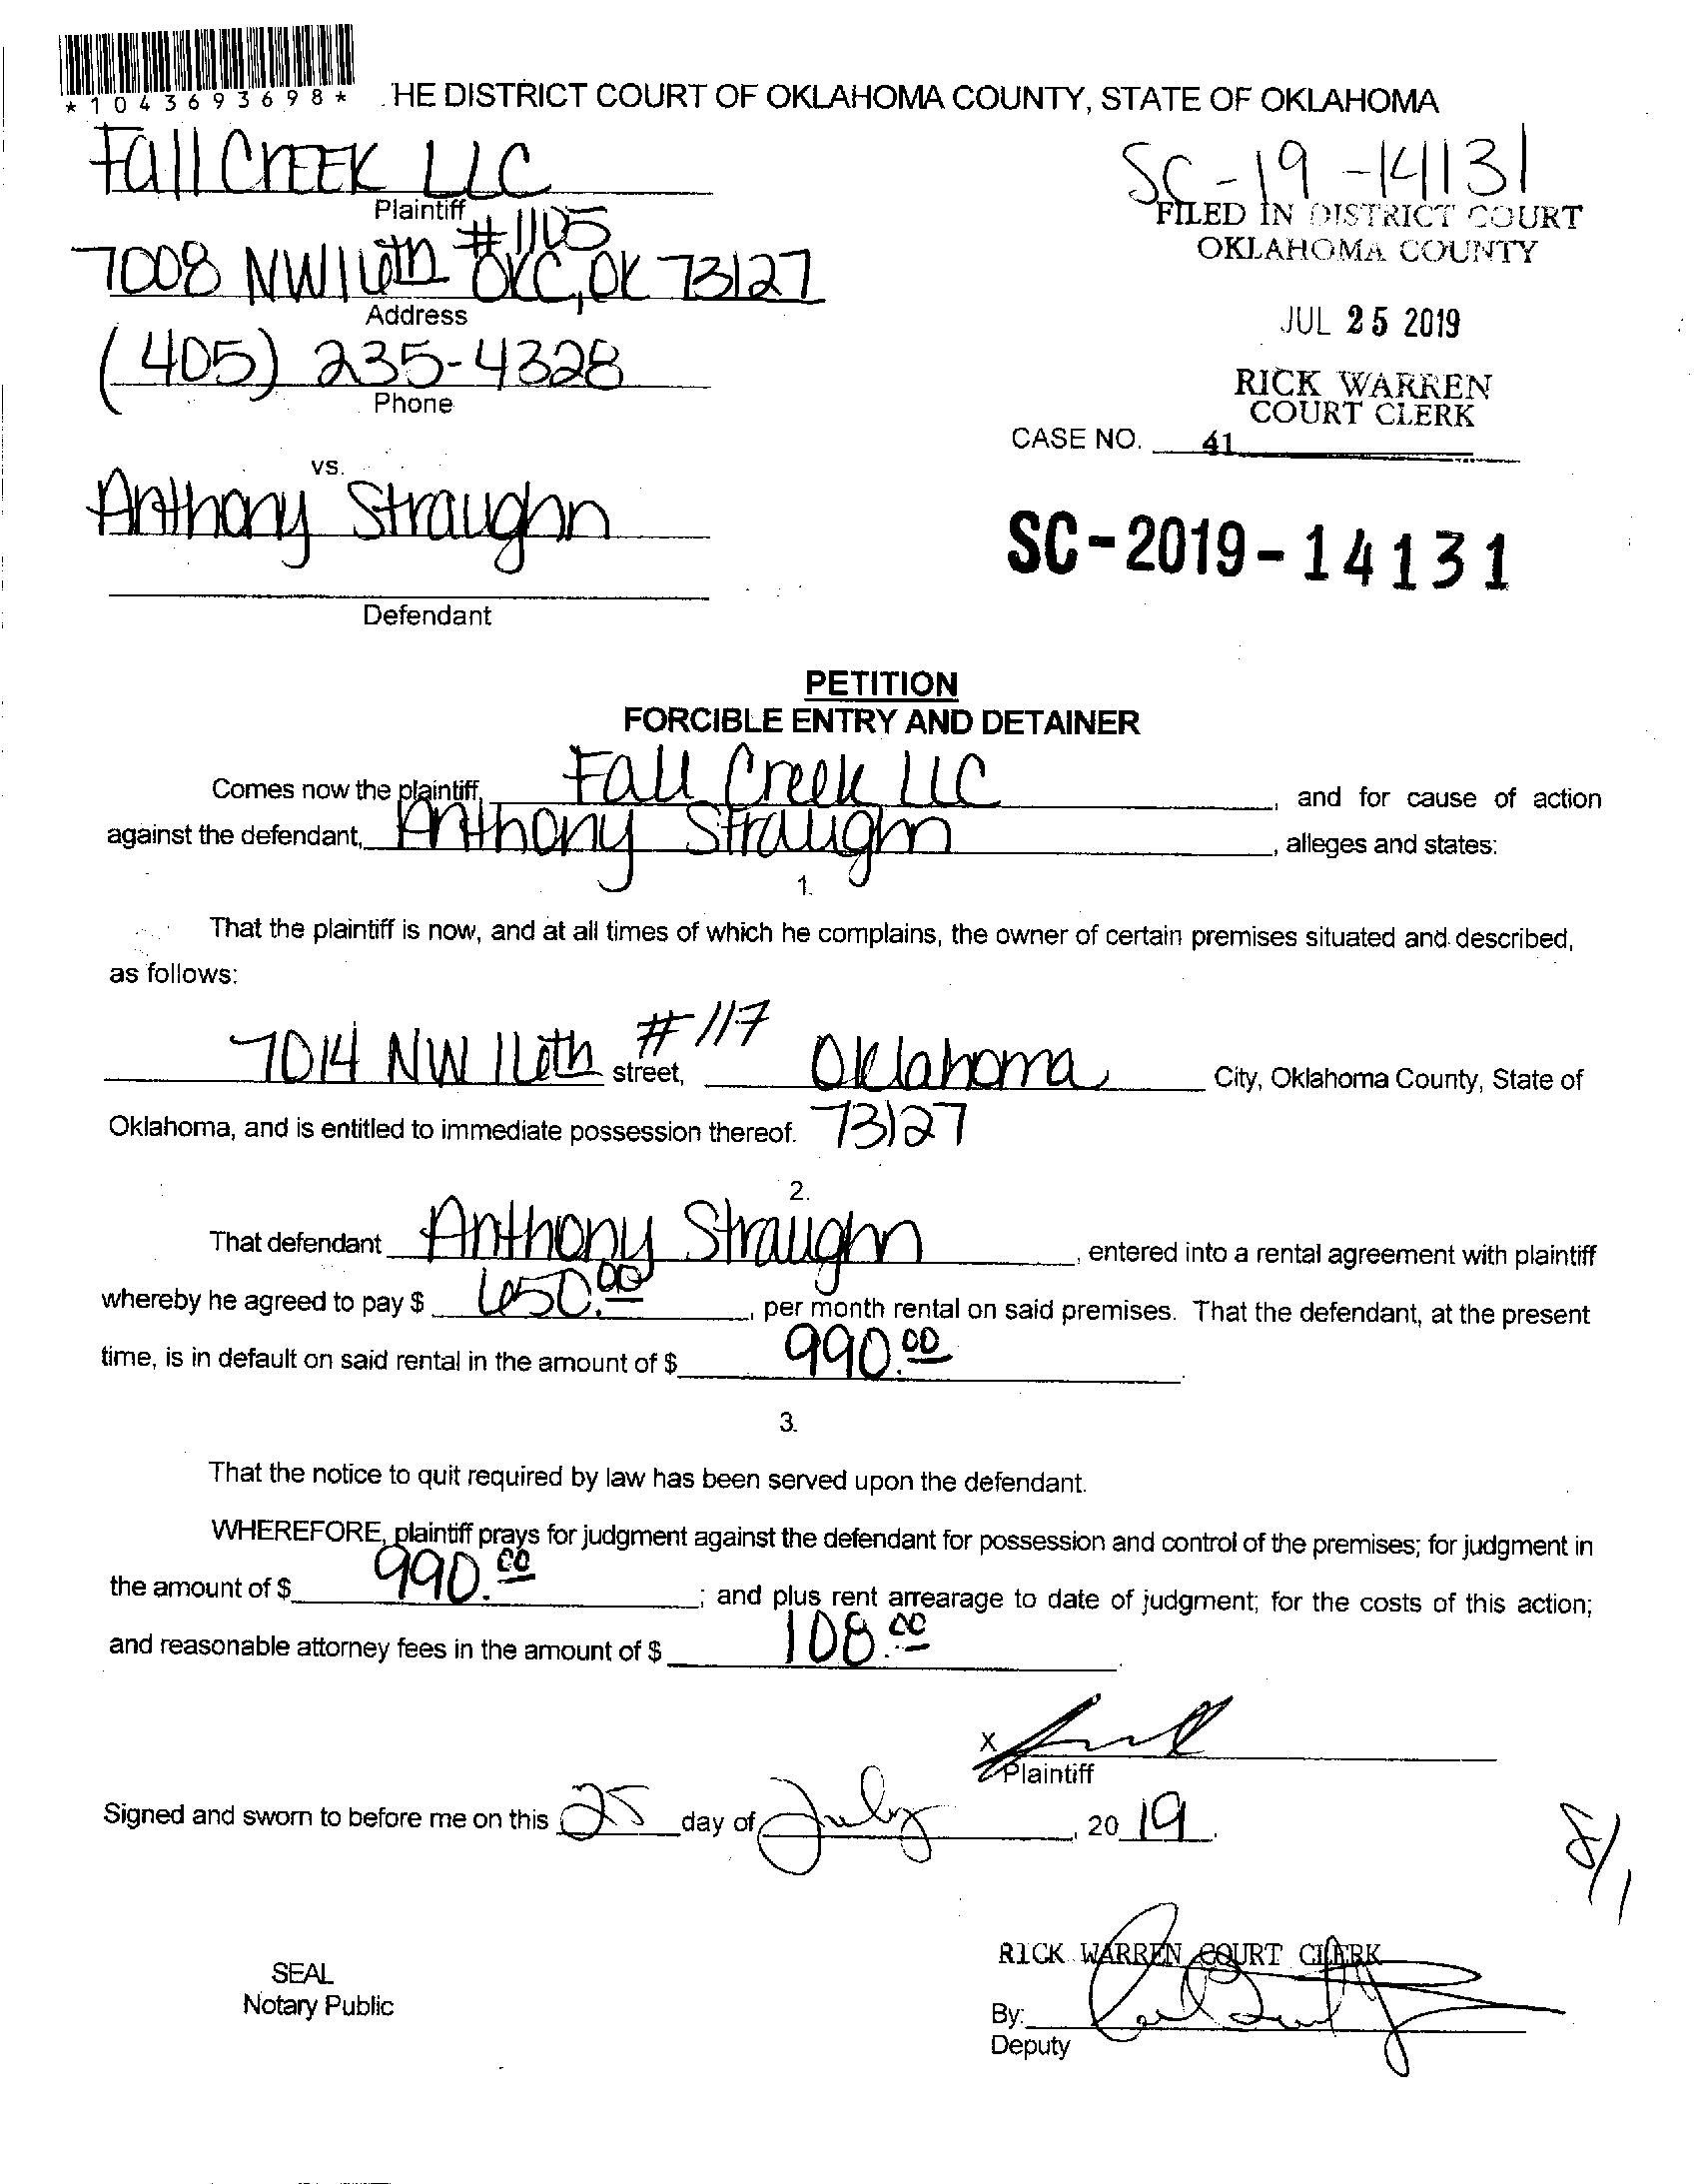 *1043693698*
HE DISTRICT COURT OF OKLAHOMA COUNTY, STATE OF OKLAHOMA
Fall Creek LLC
Plaintiff
SC-19-14131
FILED IN DISTRICT COURT
OKLAHOMA COUNTY
7008 NW 16th #1105 OKC, OK 73127
Address
JUL 25 2019
(405) 235-4328
Phone
RICK WARREN
COURT CLERK
CASE NO. 41
vs.
Anthony Straughn
SC-2019-14131
Defendant
PETITION
FORCIBLE ENTRY AND DETAINER
Comes now the plaintiff, Fall Creek LLC, and for cause of action
against the defendant, Anthony Straughn, alleges and states:
1.
That the plaintiff is now, and at all times of which he complains, the owner of certain premises situated and described,
as follows:
7014 NW 16th #117 street, Oklahoma City, Oklahoma County, State of
Oklahoma, and is entitled to immediate possession thereof. 73127
2.
That defendant Anthony Straughn, entered into a rental agreement with plaintiff
whereby he agreed to pay $ 650.00, per month rental on said premises. That the defendant, at the present
time, is in default on said rental in the amount of $ 990.00.
3.
That the notice to quit required by law has been served upon the defendant.
WHEREFORE, plaintiff prays for judgment against the defendant for possession and control of the premises; for judgment in
the amount of $ 990.00; and plus rent arrearage to date of judgment; for the costs of this action;
and reasonable attorney fees in the amount of $ 108.00.
X
Plaintiff
Signed and sworn to before me on this 25 day of July, 2019.
8/1
RICK WARREN COURT CLERK
SEAL
Notary Public
By:
Deputy